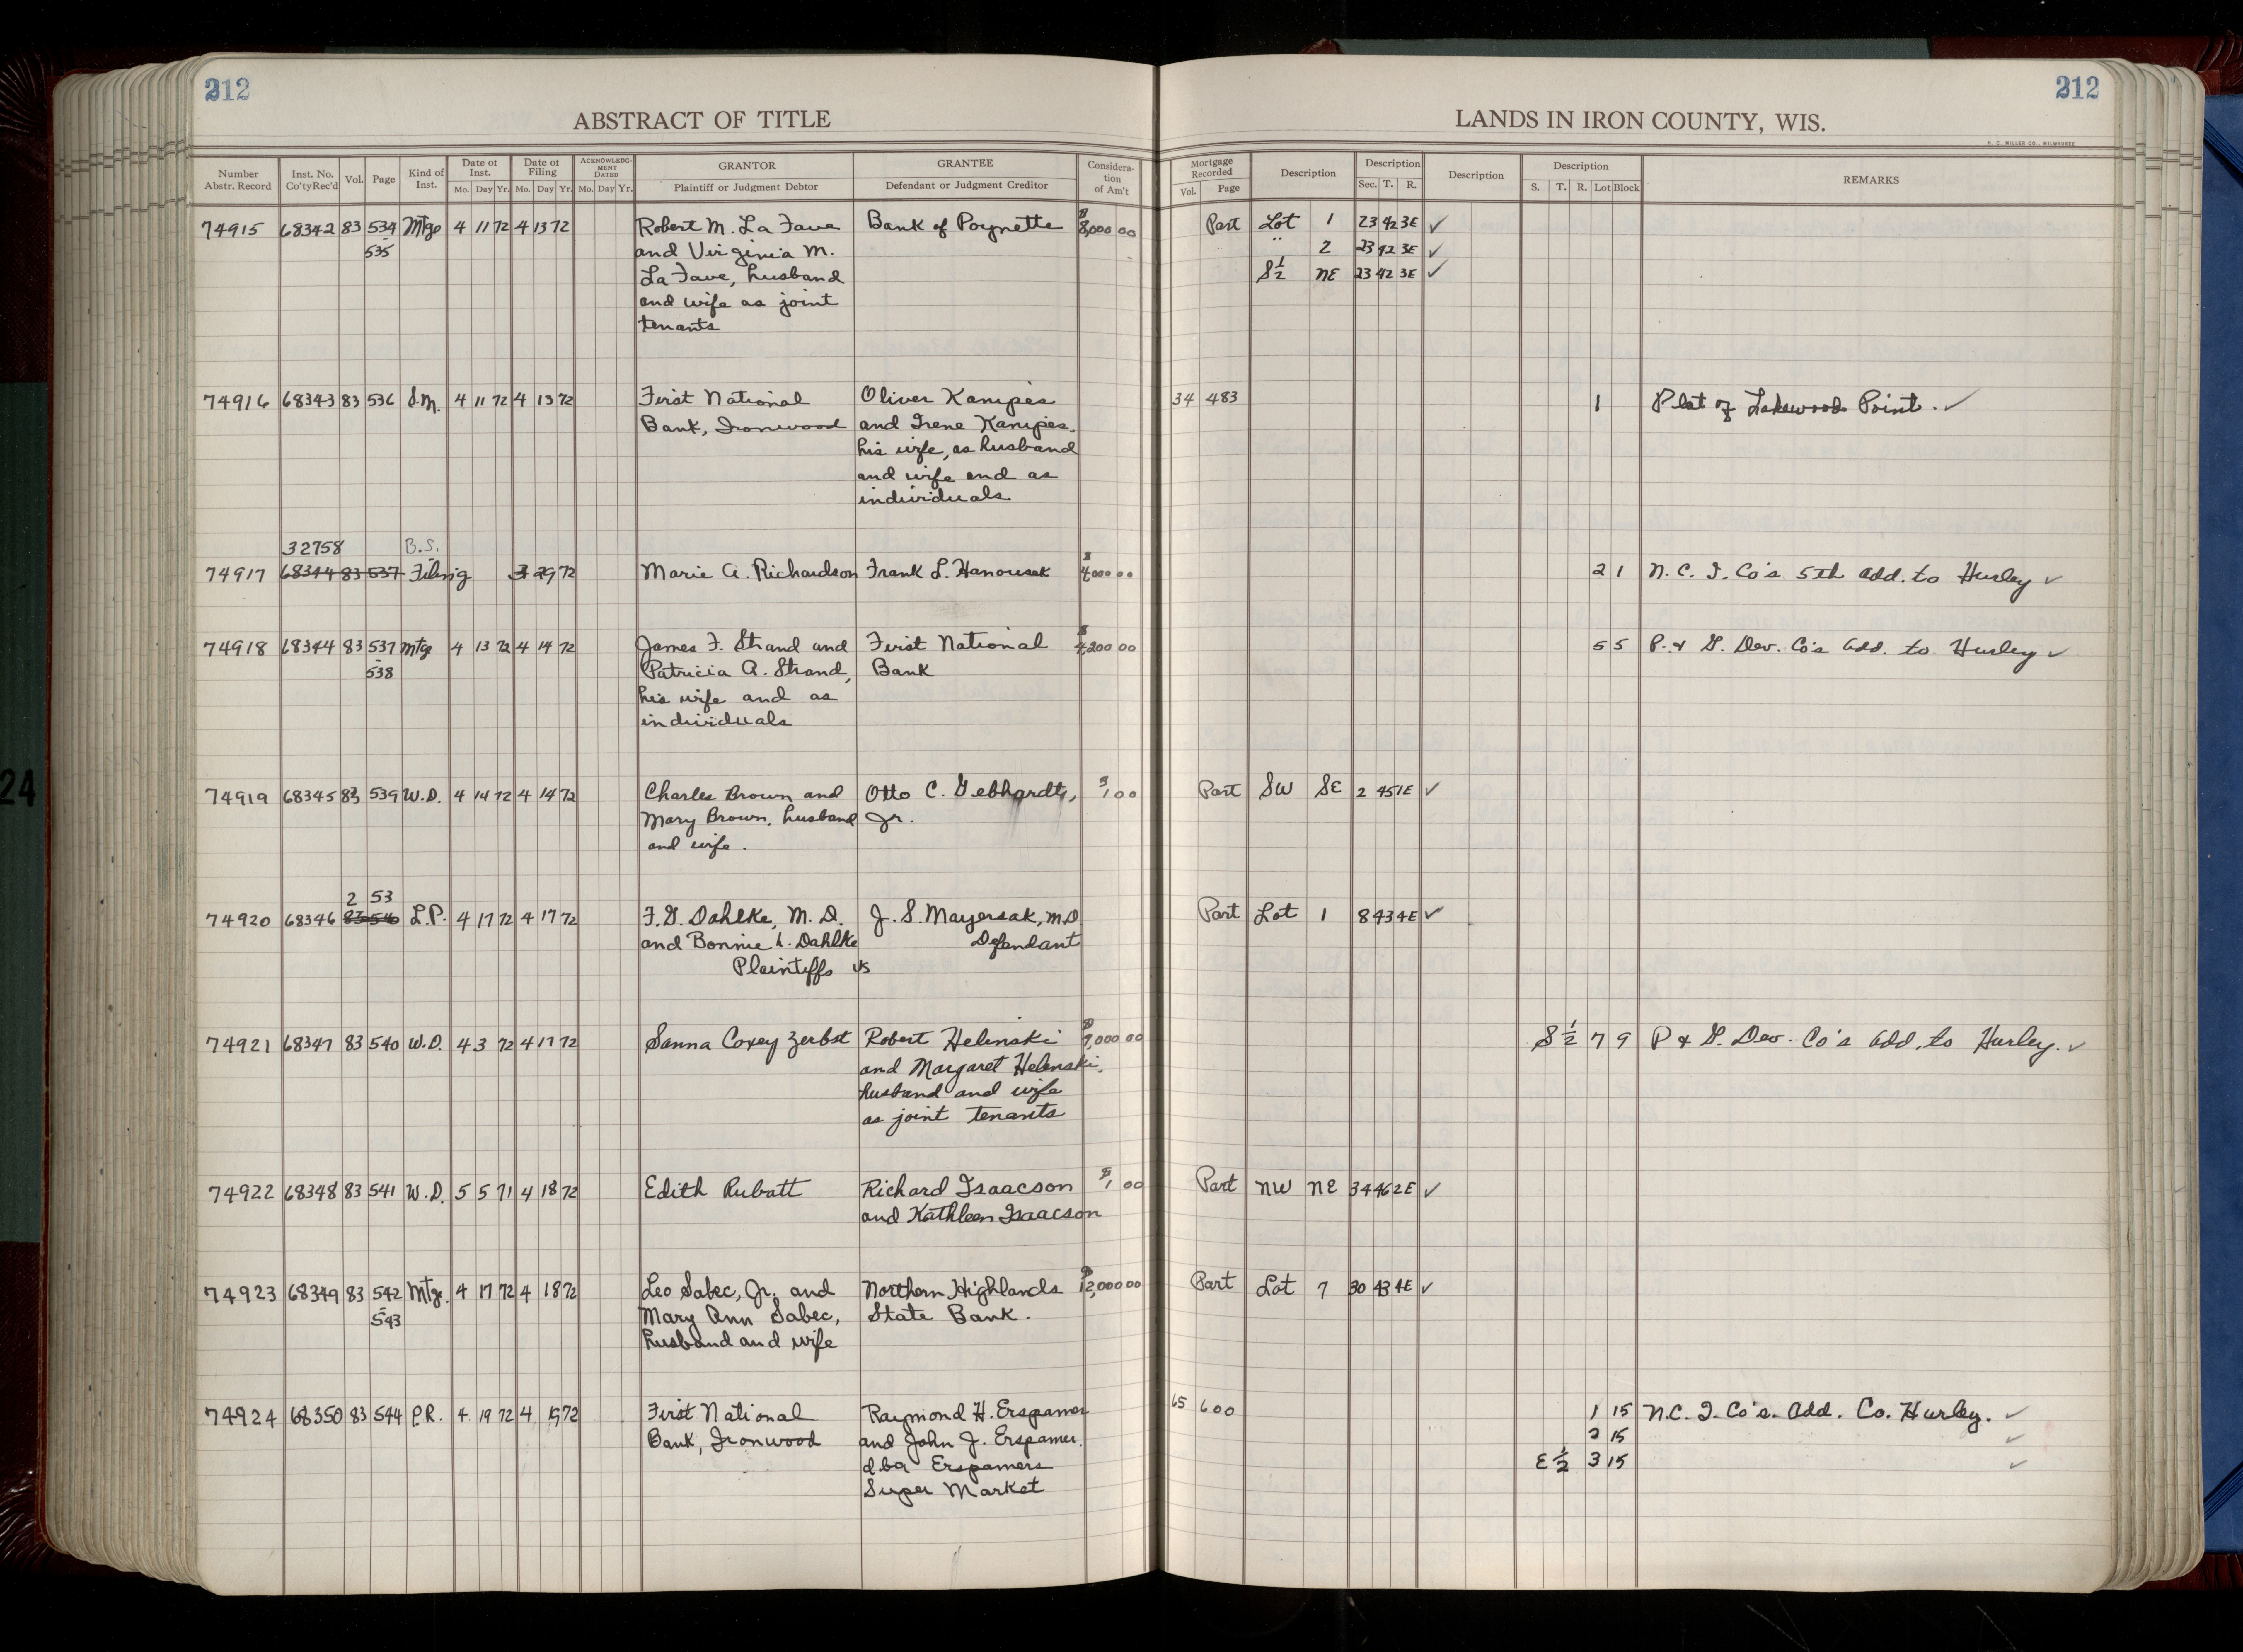 212
212
ABSTRACT OF TITLE
LANDS IN IRON COUNTY, WIS.
H. C. MILLER CO., MILWAUKEE
Number Abstr. Record Inst. No. Co'ty Rec'd Vol. Page Kind of Inst. Date of Inst. Mo. Day Yr. Date of Filing Mo. Day Yr. ACKNOWLEDGMENT DATED Mo. Day Yr. GRANTOR Plaintiff or Judgment Debtor GRANTEE Defendant or Judgment Creditor Consideration of Am't Mortgage Recorded Vol. Page Description Description Sec. T. R. Description Description S. T. R. Lot Block REMARKS
74915 68342 83 534 Mtge 4 11 72 4 13 72 Robert M. La Fave Bank of Poynette $8,000 00 Part Lot 1 23 42 3E ✓
- 535 and Virginia M. " 2 23 42 3E ✓
La Fave, husband S½ NE 23 42 3E ✓
and wife as joint
tenants
74916 68343 83 536 S.M. 4 11 72 4 13 72 First National Oliver Kampes 34 483 1 Plat of Lakewood Point. ✓
Bank, Ironwood and Irene Kampes,
his wife, as husband
and wife and as
individuals
32758 B.S.
74917 68344 83 537 Filing 3 29 72 Marie A. Richardson Frank L. Hanousek $4,000 00 2 1 N. C. I. Co's 5th Add. to Hurley ✓
74918 68344 83 537 Mtge 4 13 72 4 14 72 James F. Strand and First National $4,200 00 5 5 P. & G. Dev. Co's Add. to Hurley ✓
- 538 Patricia A. Strand, Bank
his wife and as
individuals
74919 68345 83 539 W.D. 4 14 72 4 14 72 Charles Brown and Otto C. Gebhardt, $1 00 Part SW SE 2 45 1E ✓
Mary Brown, husband Jr.
and wife.
2 53
74920 68346 83 540 L.P. 4 17 72 4 17 72 F. G. Dahlke, M. D. J. S. Mayersak, M.D. Part Lot 1 8 43 4E ✓
and Bonnie L. Dahlke Defendant
Plaintiffs vs
74921 68347 83 540 W.D. 4 3 72 4 17 72 Sanna Coxey Zerbst Robert Helinski $9,000 00 S½ 7 9 P & G. Dev. Co's Add. to Hurley. ✓
and Margaret Helinski,
husband and wife
as joint tenants
74922 68348 83 541 W.D. 5 5 71 4 18 72 Edith Rubatt Richard Isaacson $1 00 Part NW NE 34 46 2E ✓
and Kathleen Isaacson
74923 68349 83 542 Mtge. 4 17 72 4 18 72 Leo Sabec, Jr. and Northern Highlands $12,000 00 Part Lot 7 30 43 4E ✓
- 543 Mary Ann Sabec, State Bank.
husband and wife
74924 68350 83 544 P.R. 4 19 72 4 19 72 First National Raymond H. Erspamer 65 600 1 15 N.C. I. Co's. Add. Co. Hurley. ✓
Bank, Ironwood and John J. Erspamer, 2 15 ✓
dba Erspamers E½ 3 15 ✓
Super Market
24